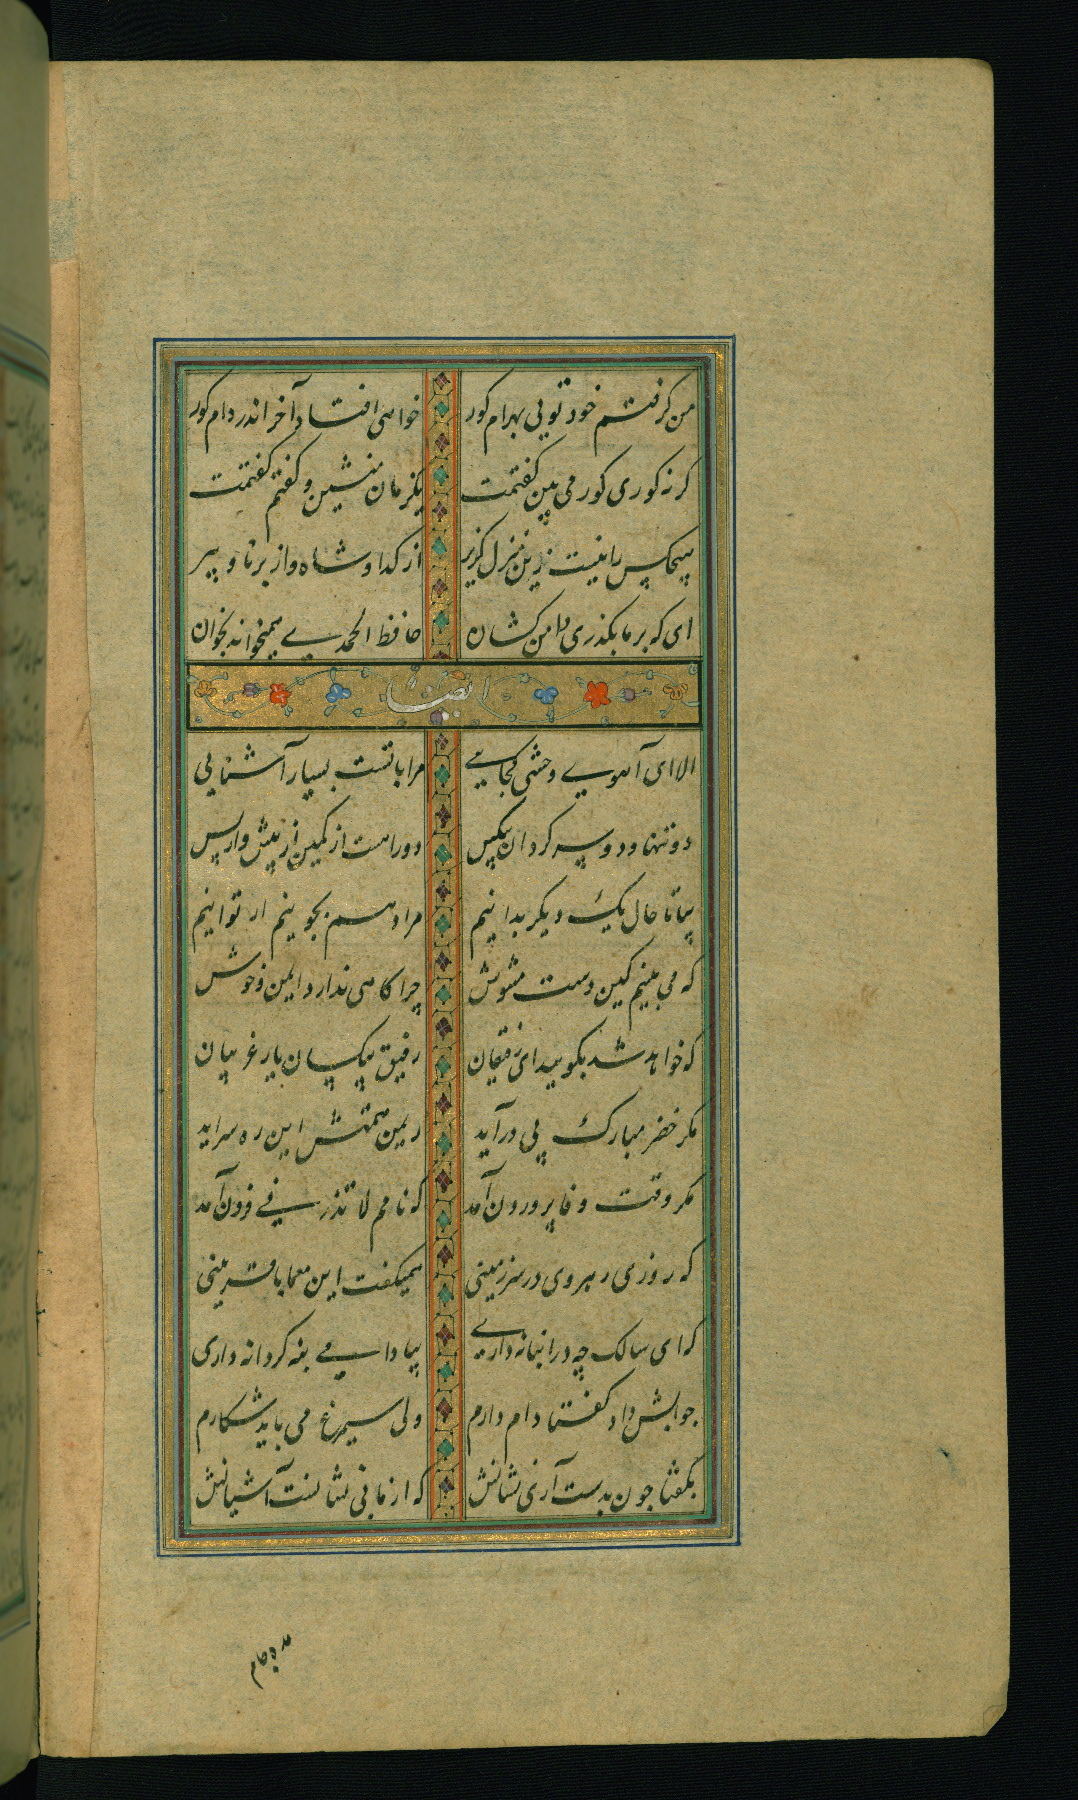 من کرفتم خود تویی بهرام کور خواهی افتاد آخر اندر دام کور
کر نه کوری کور می بین کفتمت یکزمان منشین و کفتم کفتمت
هیچکس را نیست زین منزل کزیر از کدا و شاه و از برنا و پیر
ای که بر ما بکذری دامن کشان حافظ الحمدی همیخواند بخوان
ایضا
الا ای آهوی وحشی کجایی مرا با تست بسیار آشنایی
دو تنها و دو سر کردان بیکس دو راهت از کمین از پیش و از پس
بیا تا حال یک دیکر بدانیم مراد هم بجوییم ار توانیم
که می بینم کین دشت مشوش چراکاهی ندارد ایمن و خوش
که خواهد شد بکویید ای رفیقان رفیق بیکسان یار غریبان
مکر خضر مبارک پی درآید ز یمن همتش این ره سراید
مکر وقت وفا پروردن آمد که نامم لا تذرنی فردن آمد
که روزی رهروی در سرزمینی همیکفت این معما با قرینی
که ای سالک چه در انبانه داری بیا دامی بنه کر دانه داری
جوابش داد کفتا دام دارم ولی سیمرغ می باید شکارم
بکفتا چون بدست آری نشانش که از ما بی نشانست آشیانش